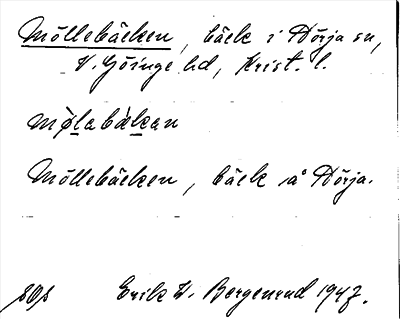 Möllebäcken, bäck i Hörja sn,
V. Göinge hd, Krist. l.
mø̀labækan
Möllebäcken, bäck i Hörja.
Erik W. Bergenrud 1947.